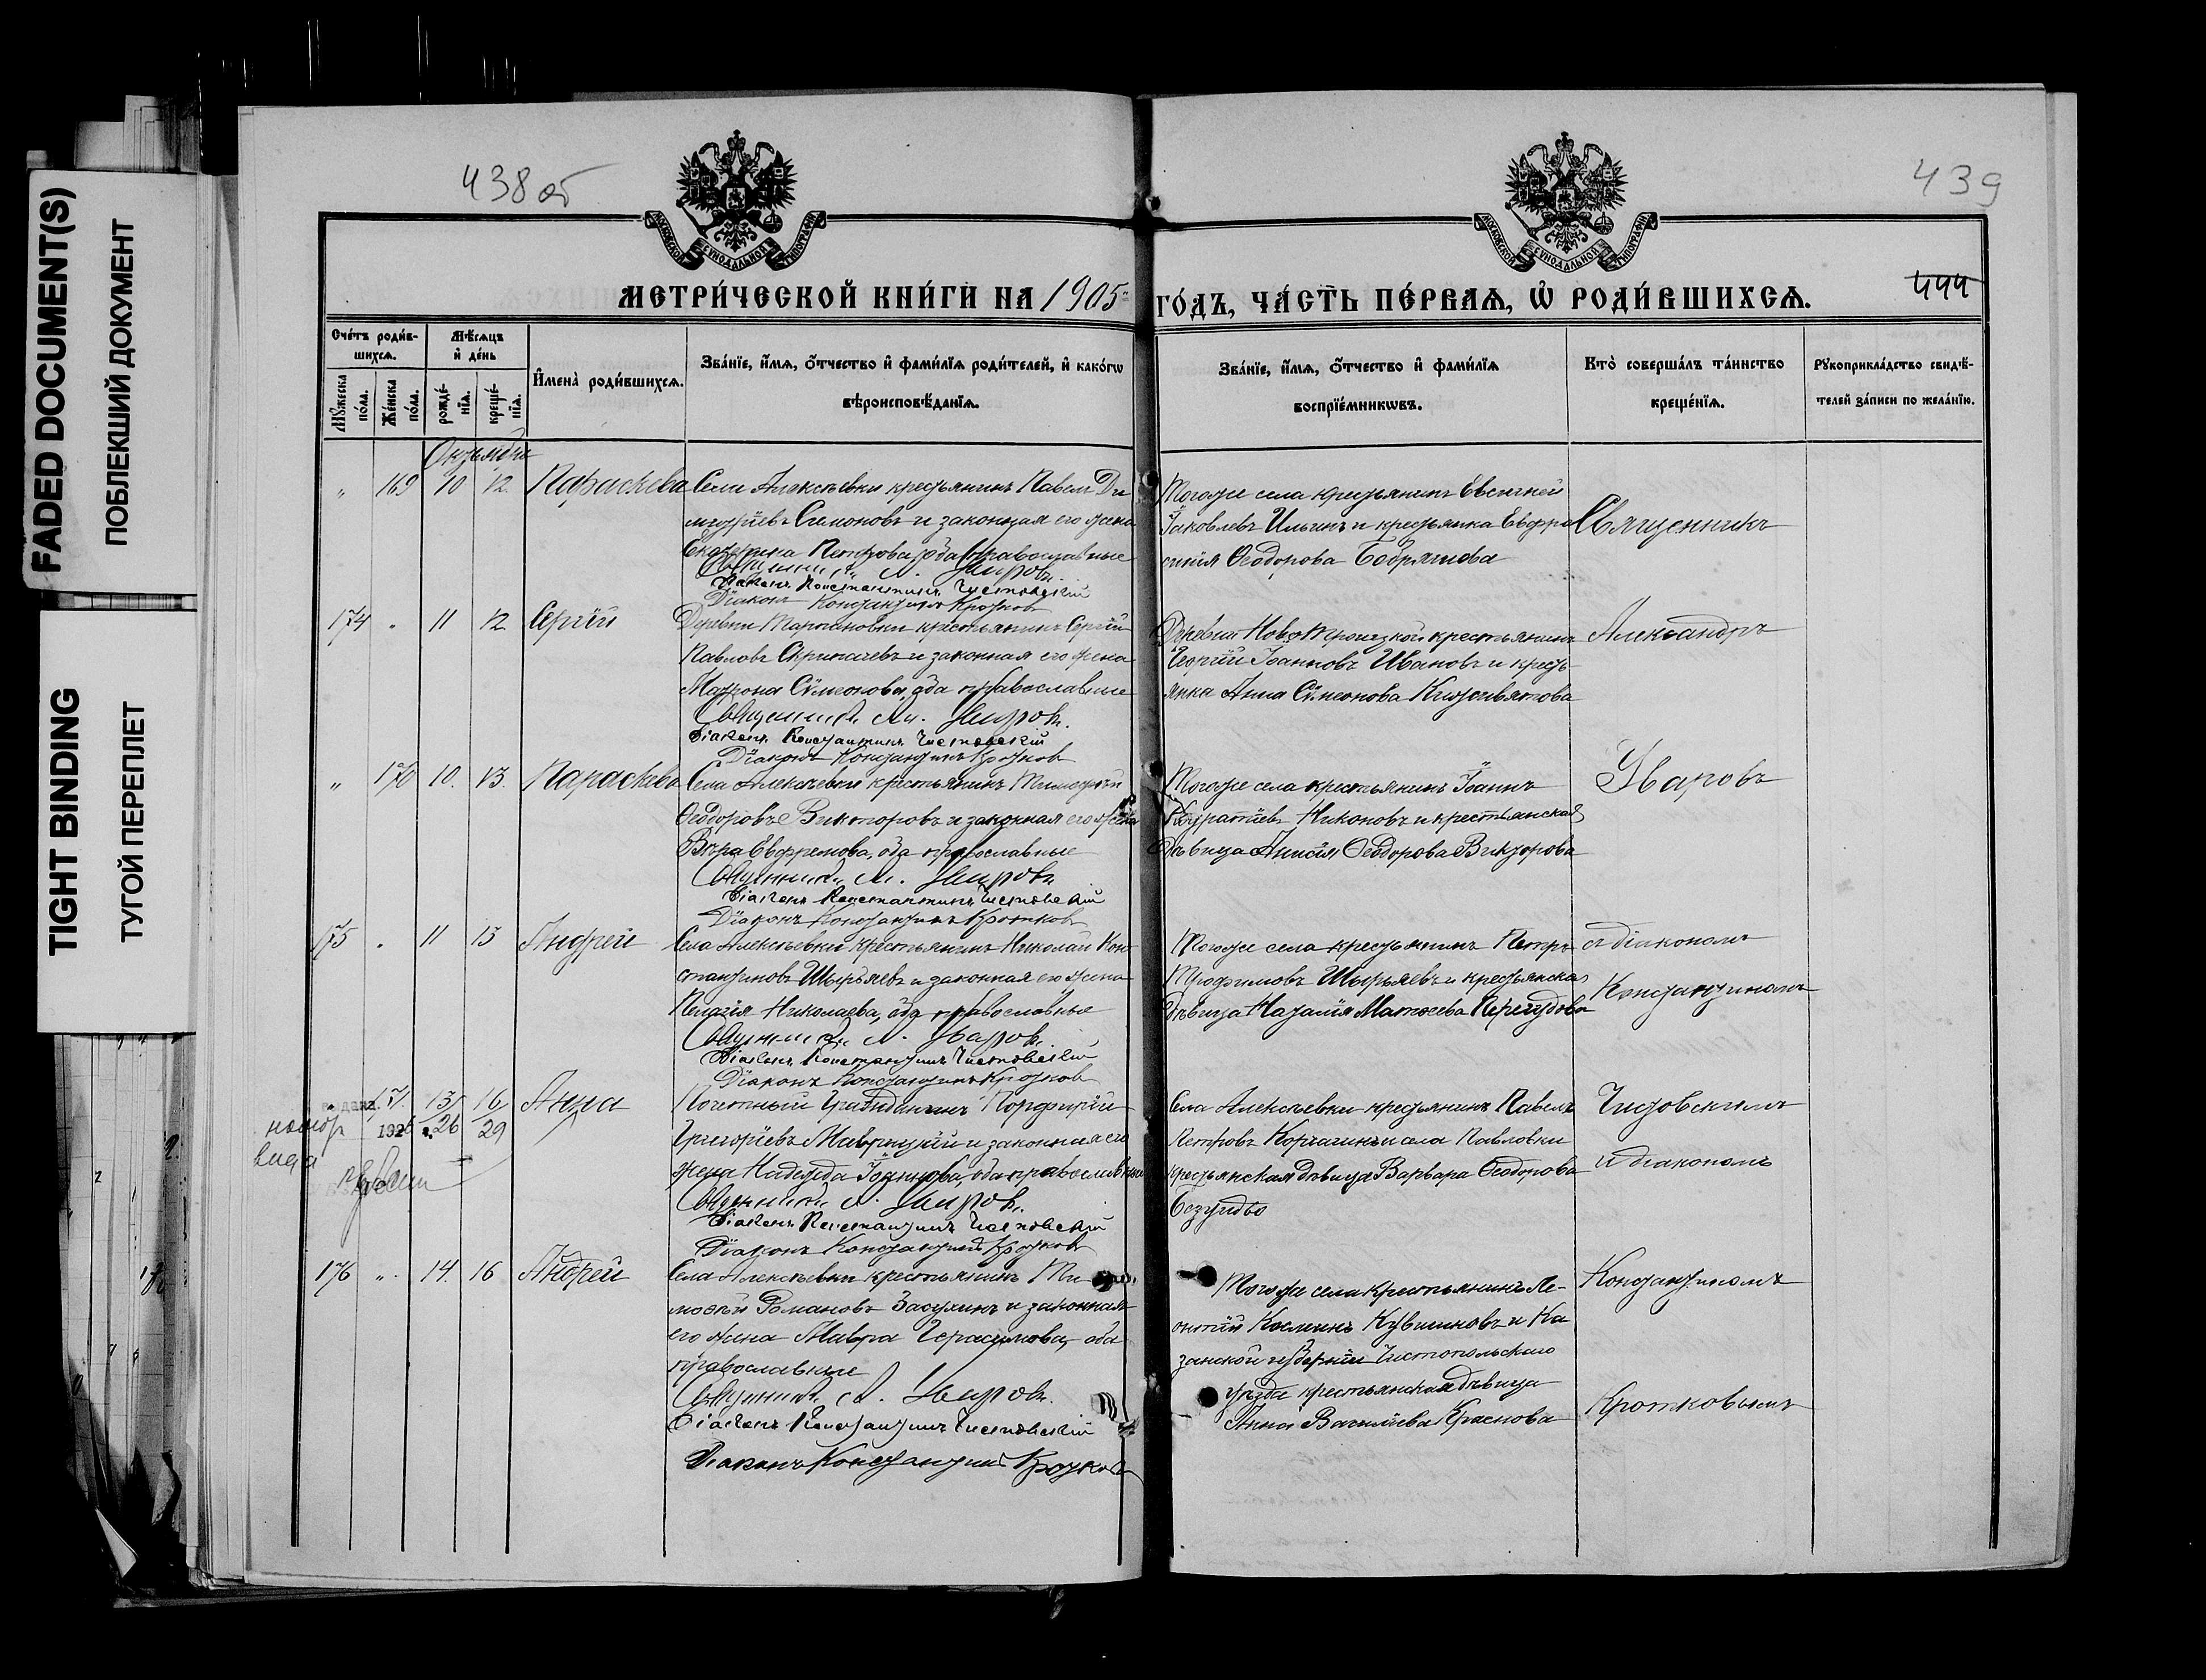 FADED DOCUMENT(S)
ПОБЛЕКШИЙ ДОКУМЕНТ
TIGHT BINDING
ТУГОЙ ПЕРЕПЛЕТ
438 об
439
444
МОСКОВСКОЙ СѴНОДАЛЬНОЙ ТИПОГРАФІИ
МОСКОВСКОЙ СѴНОДАЛЬНОЙ ТИПОГРАФІИ
МЕТРИ́ЧЕСКОЙ КНИ́ГИ НА 1905 ГО́ДЪ, ЧА́СТЬ ПЕ́РВАѦ, Ѽ РОДИ́ВШИХСѦ.
Сче́тъ роди́в-
шихсѧ.
Мꙋ́жеска по́ла.
Же́нска по́ла.
Мѣ́сѧцъ
и҆ де́нь
рожде́-
нїѧ.
креще́-
нїѧ.
И҆мена̀ роди́вшихсѧ.
Зва́нїе, и҆́мѧ, ѻ҆́тчество и҆ фами́лїѧ роди́телей, и҆ како́гѡ
вѣроисповѣ́данїѧ.
Зва́нїе, и҆́мѧ, ѻ҆́тчество и҆ фами́лїѧ
воспрїе́мникѡвъ.
Кто̀ соверша́лъ та́инство
креще́нїѧ.
Рꙋкоприкла́дство свидѣ́-
телей за́писи по жела́нїю.
Октябрь
" 169 10 12. Параскева
Села Алексѣевки крестьянинъ Павелъ Ди
митріевъ Симоновъ и законная его жена
Екатерина Петрова, оба православные
Священникъ А. Уваровъ.
Діаконъ Константинъ Чистовскій
Діаконъ Константинъ Кротковъ
Тогоже села крестьянинъ Евсигней
Іаковлевъ Ильинъ и крестьянка Евфро
синія Ѳеодорова
Священникъ
174 " 11 12 Сергій
Деревни Марьиновки крестьянинъ Сергій
Павловъ Скрипачевъ и законная его жена
Матрона Сѵмеонова, оба православные
Священникъ А. Уваровъ.
Діаконъ Константинъ Чистовскій
Діаконъ Константинъ Кротковъ
Деревни Ново-Троицкой крестьянинъ
Георгій Іоанновъ Ивановъ и кресть
янка Анна Сѵмеонова
Александръ
" 170 10. 13. Параскева
Села Алексѣевки крестьянинъ Тимоѳей
Ѳеодоровъ Викторовъ и законная его жена
Вѣра Евфремова, оба православные
Священникъ А. Уваровъ
Діаконъ Константинъ Чистовскій
Діаконъ Константинъ Кротковъ
Тогоже села крестьянинъ Іоаннъ
Никоновъ и крестьянская
дѣвица Анисія Ѳеодорова Викторова
Уваровъ
175 " 11 13 Андрей
Села Алексѣевки крестьянинъ Николай Кон
стантиновъ Шыряевъ и законная его жена
Пелагія Николаева, оба православные
Священникъ А. Уваровъ.
Діаконъ Константинъ Чистовскій
Діаконъ Константинъ Кротковъ
Тогоже села крестьянинъ Петръ
Трофимовъ Шыряевъ и крестьянская
дѣвица Наталія Матѳеева
съ діакономъ
Константиномъ
171. 13 16 Анна
ноябр 1926 г. 26 29
вида
Почетный Гражданинъ Порфирій
Григоріевъ и законная его
жена Надежда Іоаннова, оба православные
Священникъ А. Уваровъ.
Діаконъ Константинъ Чистовскій
Діаконъ Константинъ Кротковъ
Села Алексѣевки крестьянинъ Павелъ
Петровъ Корчагинъ и села Павловки
крестьянская дѣвица Варвара Ѳеодорова
Чистовскимъ
и діакономъ
176 " 14. 16 Андрей
Села Алексѣевки крестьянинъ Ти
моѳей Романовъ и законная
его жена Мавра Герасимова, оба
православные
Священникъ А. Уваровъ.
Діаконъ Константинъ Чистовскій
Діаконъ Константинъ Кротковъ
Тогоже села крестьянинъ Ле-
онтій Косминъ Кувшиновъ и Ка
занской губерніи Чистопольскаго
уѣзда крестьянская дѣвица
Анна Василіева Краснова
Константиномъ
Кротковымъ